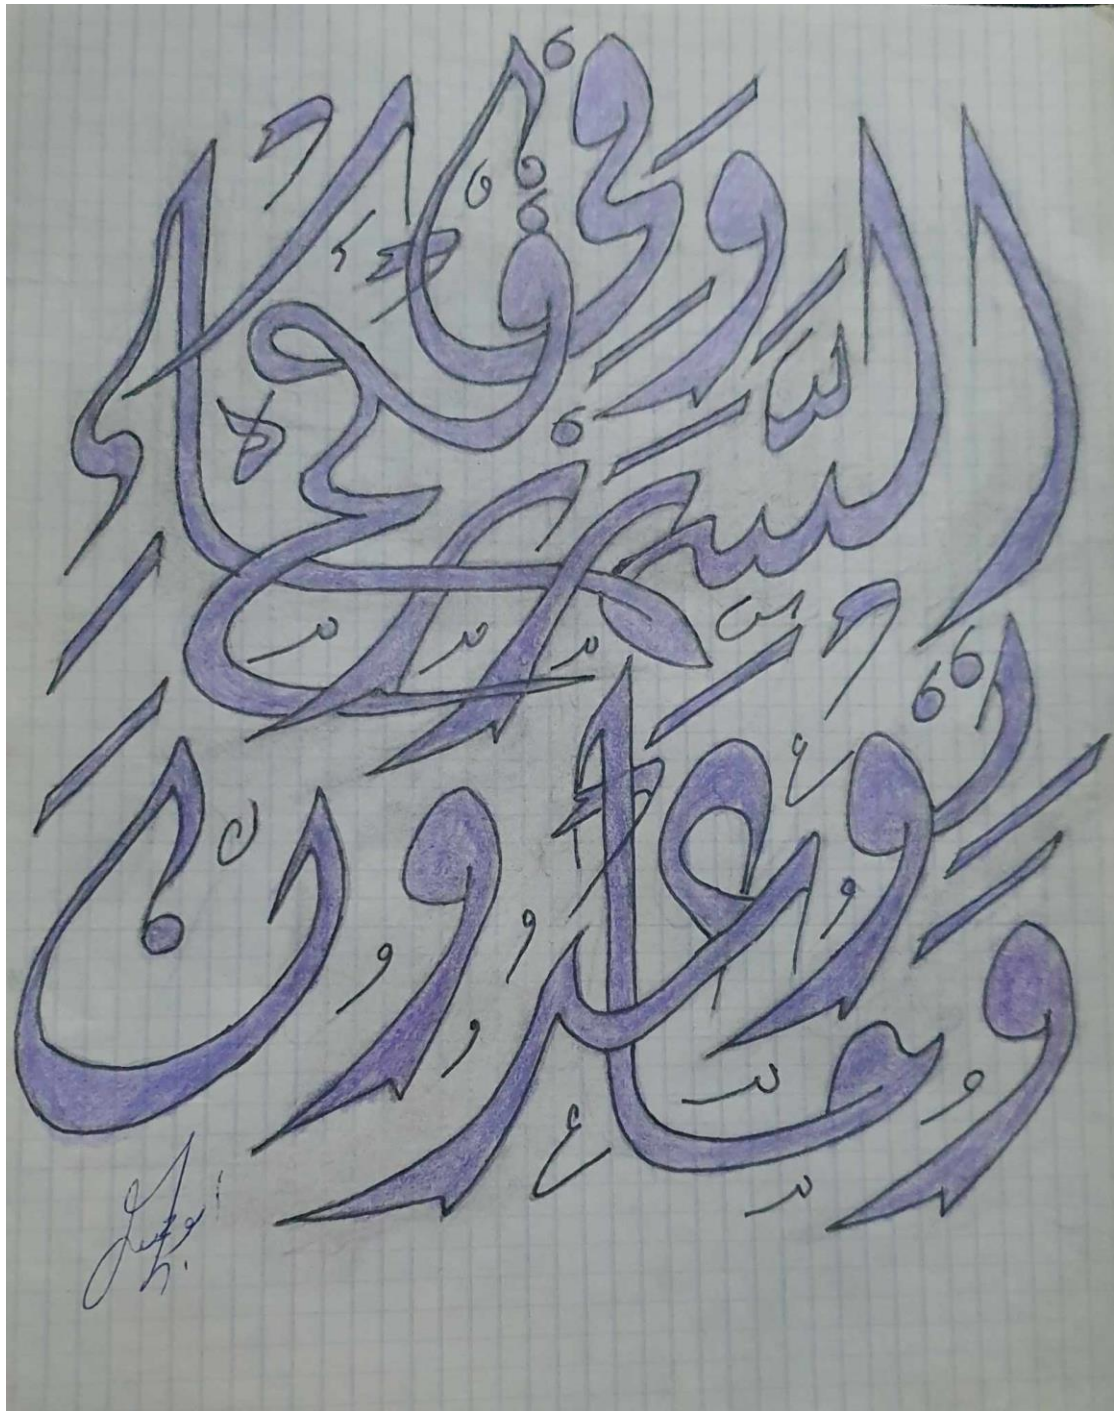 وفي السماء رزقكم
وما توعدون